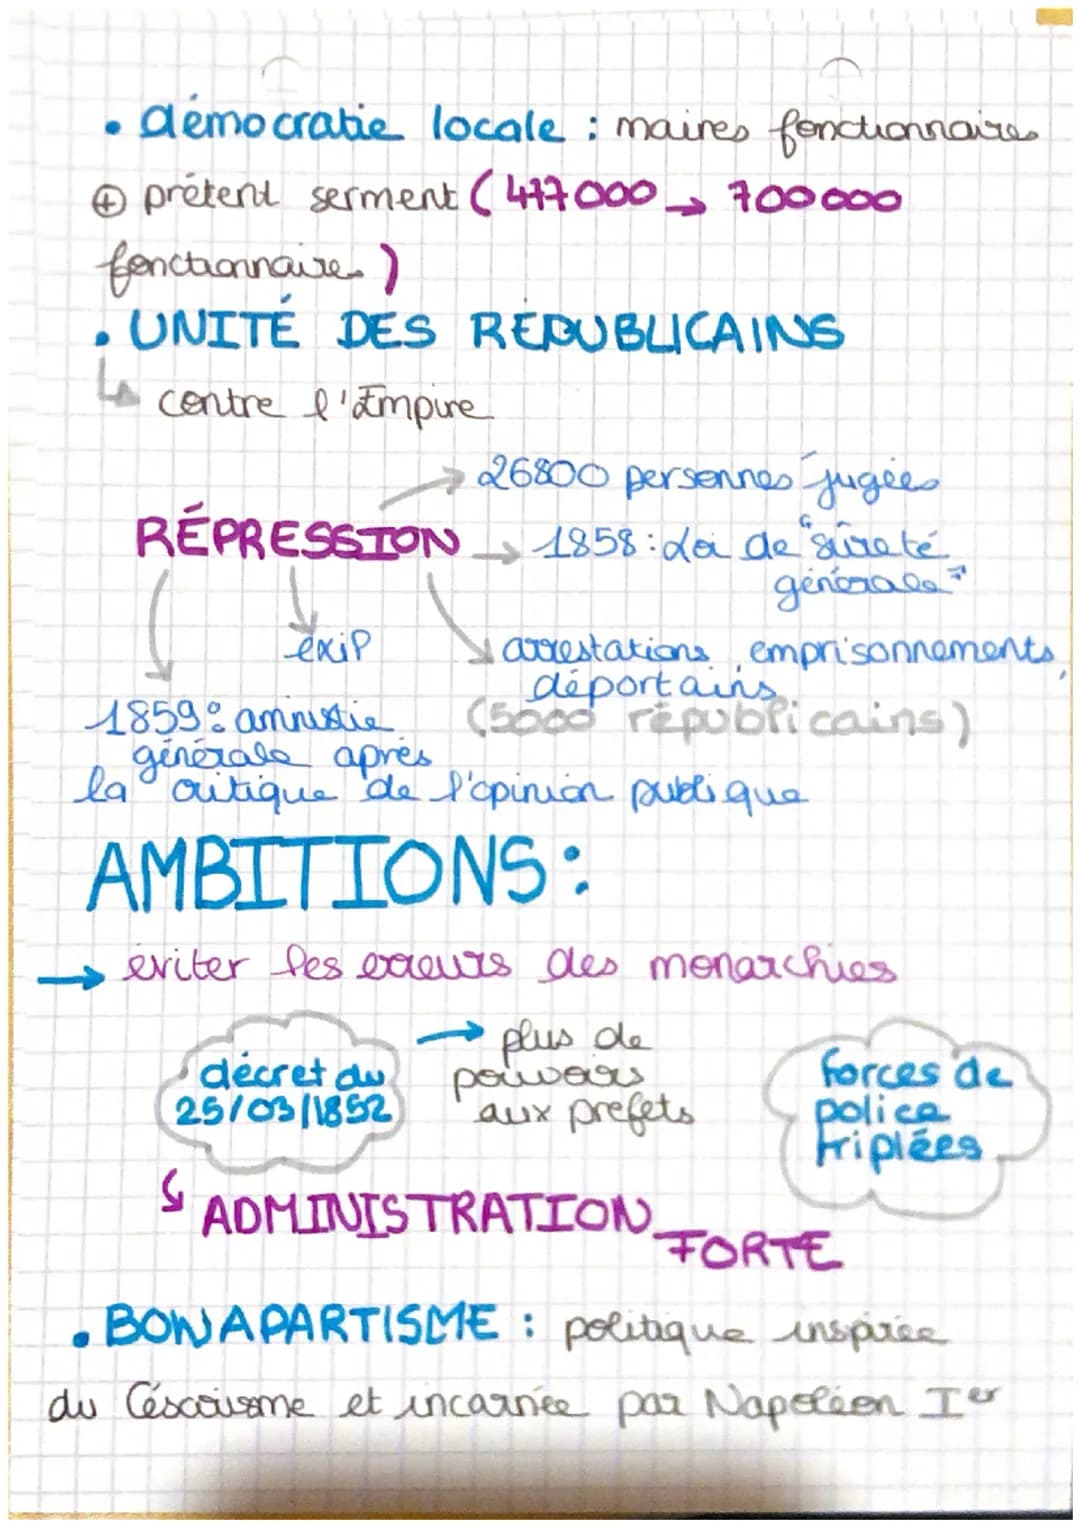 • démocratie locale : maires fonctionnaires
⊕ prêtent serment (477000 → 700000
fonctionnaires)
• UNITÉ DES RÉPUBLICAINS
↳ contre l'Empire
→ 26800 personnes jugées
RÉPRESSION → 1858 : Loi de "sûreté
générale"
exil
arrestations, emprisonnements,
déportains
1859 : amnistie (5000 républicains)
générale après
la critique de l'opinion publique
AMBITIONS :
→ éviter les erreurs des monarchies
décret du
25/03/1852
→ plus de
pouvoirs
aux préfets
forces de
police
triplées
↳ ADMINISTRATION
FORTE
• BONAPARTISME : politique inspirée
du Césarisme et incarnée par Napoléon Ier